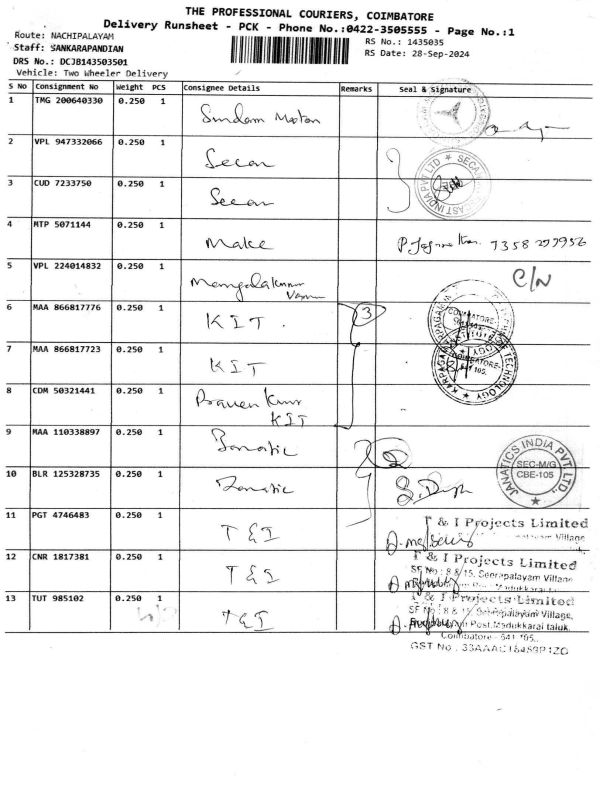 THE PROFESSIONAL COURIERS, COIMBATORE
Delivery Runsheet - PCK - Phone No.:0422-3505555 - Page No.:1
Route: NACHIPALAYAM
RS No.: 1435035
Staff: SANKARAPANDIAN
RS Date: 28-Sep-2024
DRS No.: DCJB143503501
Vehicle: Two Wheeler Delivery
S No Consignment No Weight PCS Consignee Details Remarks Seal & Signature
1 TMG 200640330 0.250 1
2 VPL 947332066 0.250 1
3 CUD 7233750 0.250 1
4 MTP 5071144 0.250 1 Make 7358 277956
5 VPL 224014832 0.250 1 C/N
6 MAA 866817776 0.250 1 KIT. 3
7 MAA 866817723 0.250 1 KIT
8 CDM 50321441 0.250 1 KIT
9 MAA 110338897 0.250 1 Janatic 2
10 BLR 125328735 0.250 1 Janatic
JANATICS INDIA PVT. LTD
SEC-M/G
CBE-105
11 PGT 4746483 0.250 1 T&I
T & I Projects Limited
12 CNR 1817381 0.250 1 T&I
T & I Projects Limited
SF No : 8 & 15, Seerapalayam Village
13 TUT 985102 0.250 1 T&I
T & I Projects Limited
SF No : 8 & 15, Seerapalayam Village,
Post, Madukkarai taluk,
Coimbatore - 641 105.
GST No :